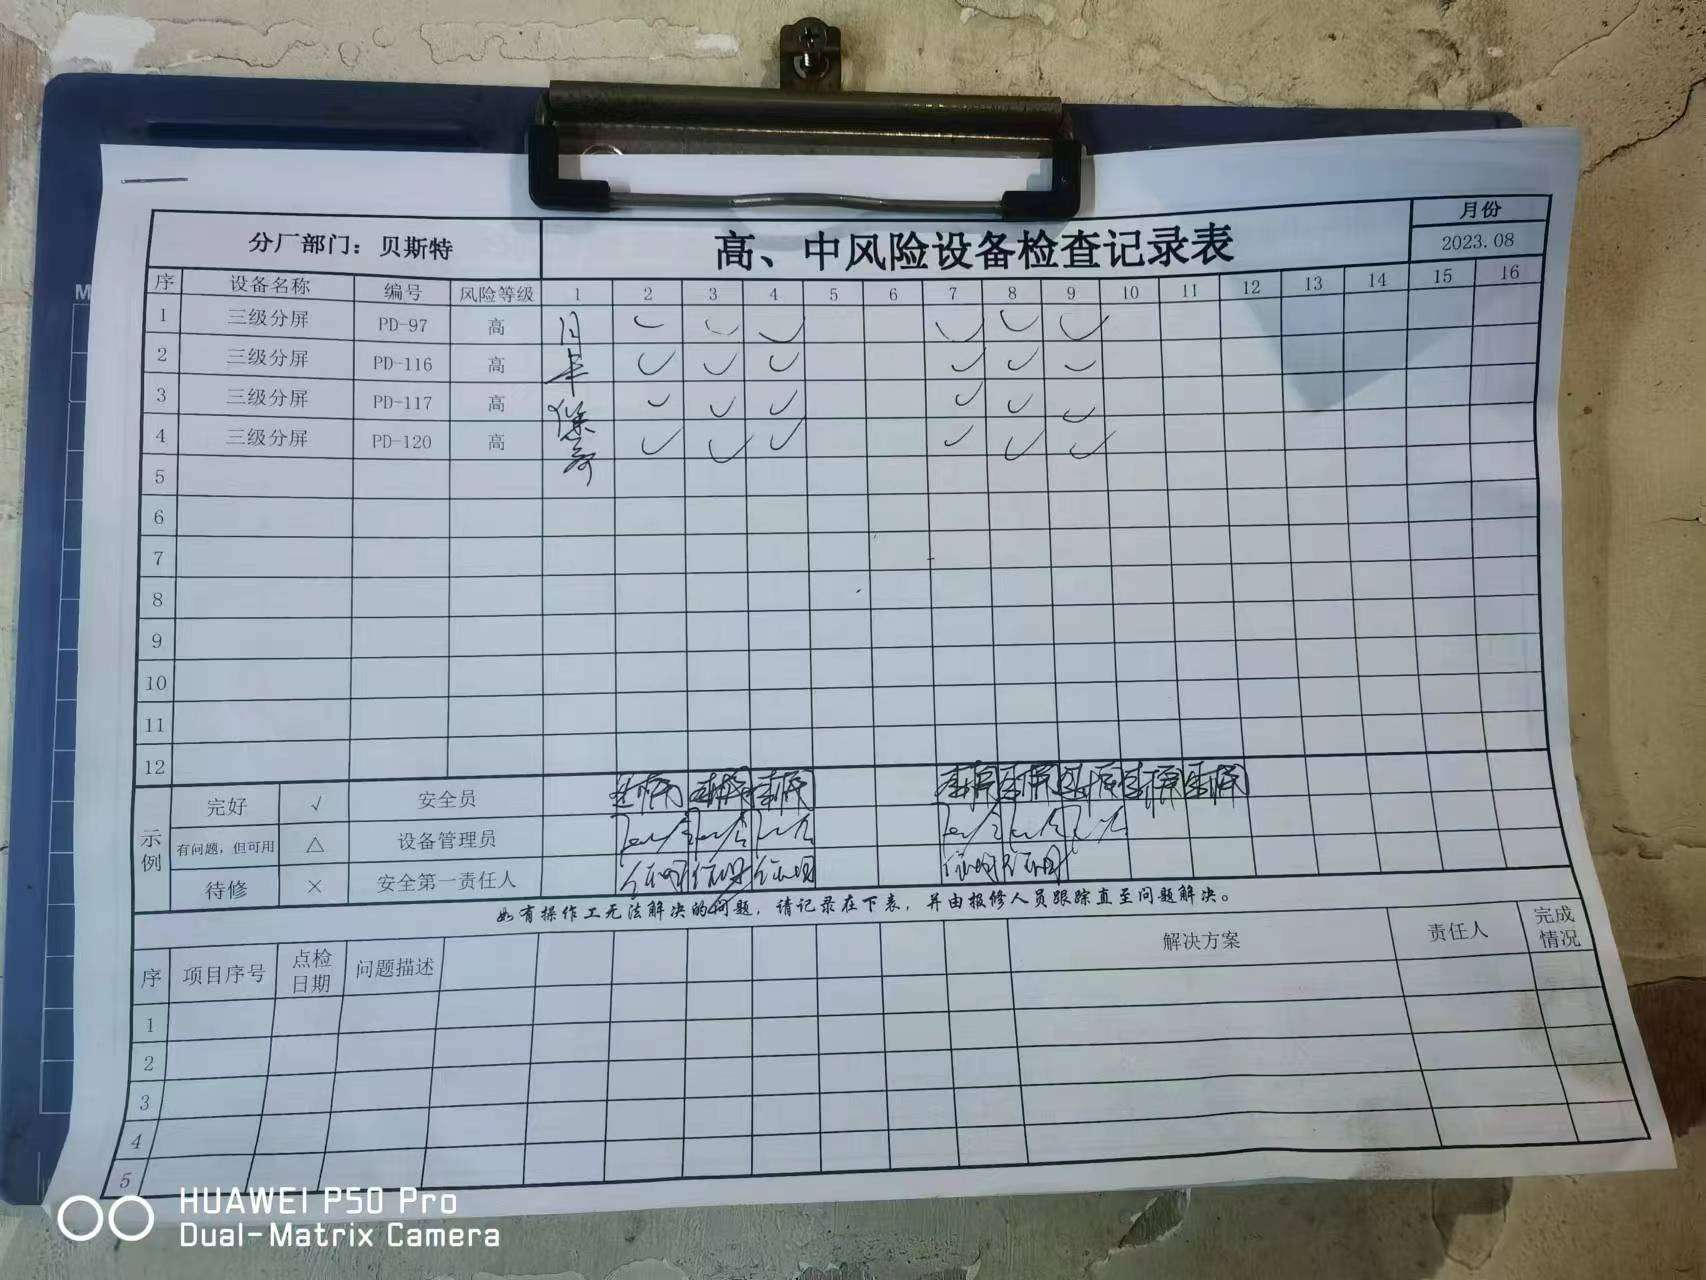 分厂部门：贝斯特 高、中风险设备检查记录表 月份
2023.08
序 设备名称 编号 风险等级 1 2 3 4 5 6 7 8 9 10 11 12 13 14 15 16
1 三级分屏 PD-97 高 ✓ ✓ ✓ ✓ ✓ ✓
2 三级分屏 PD-116 高 ✓ ✓ ✓ ✓ ✓ ✓
3 三级分屏 PD-117 高 ✓ ✓ ✓ ✓ ✓ ✓
4 三级分屏 PD-120 高 ✓ ✓ ✓ ✓ ✓ ✓
5
6
7
8
9
10
11
12
示例 完好 √ 安全员
有问题，但可用 △ 设备管理员
待修 × 安全第一责任人
如有操作工无法解决的问题，请记录在下表，并由报修人员跟踪直至问题解决。
序 项目序号 点检日期 问题描述 解决方案 责任人 完成情况
1
2
3
4
5
HUAWEI P50 Pro
Dual-Matrix Camera